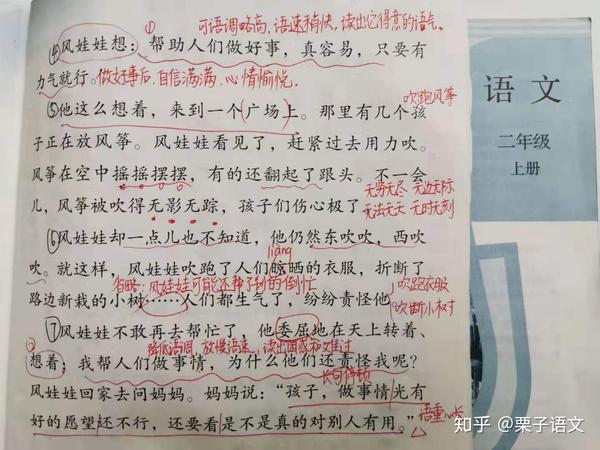 ① 可语调略高,语速稍快,读出记得意的语气。
④风娃娃想:帮助人们做好事,真容易,只要有
力气就行。做好事后,自信满满、心情愉悦。
⑤他这么想着,来到一个广场上。那里有几个孩
吹跑风筝
子正在放风筝。风娃娃看见了,赶紧过去用力吹。
风筝在空中摇摇摆摆,有的还翻起了跟头。不一会
无穷无尽 无边无际
儿,风筝被吹得无影无踪,孩子们伤心极了
无法无天 无时无刻
⑥风娃娃却一点儿也不知道,他仍然东吹吹,西吹
liàng
吹。就这样,风娃娃吹跑了人们晾晒的衣服,折断了
省略:风娃娃可能还帮了别的倒忙
吹跑衣服
路边新栽的小树……人们都生气了,纷纷责怪他
吹断小树
⑦风娃娃不敢再去帮忙了,他委屈地在天上转着、
② 降低语调,放慢语速,读出困惑和难过
想着:我帮人们做事情,为什么他们还责怪我呢?
长句停顿
风娃娃回家去问妈妈。妈妈说:“孩子,做事情光有
好的愿望还不行,还要看是不是真的对别人有用。”
语重心长
语文
二年级
上册
知乎 @栗子语文